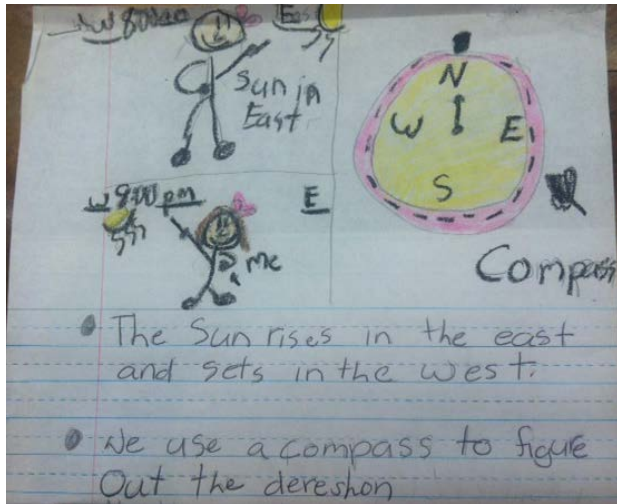 W 8:00 East
Sun in
East
W 8:00 pm E
me
N
W E
S
Compass
The Sun rises in the east
and sets in the west.
We use a compass to figure
Out the dereshon